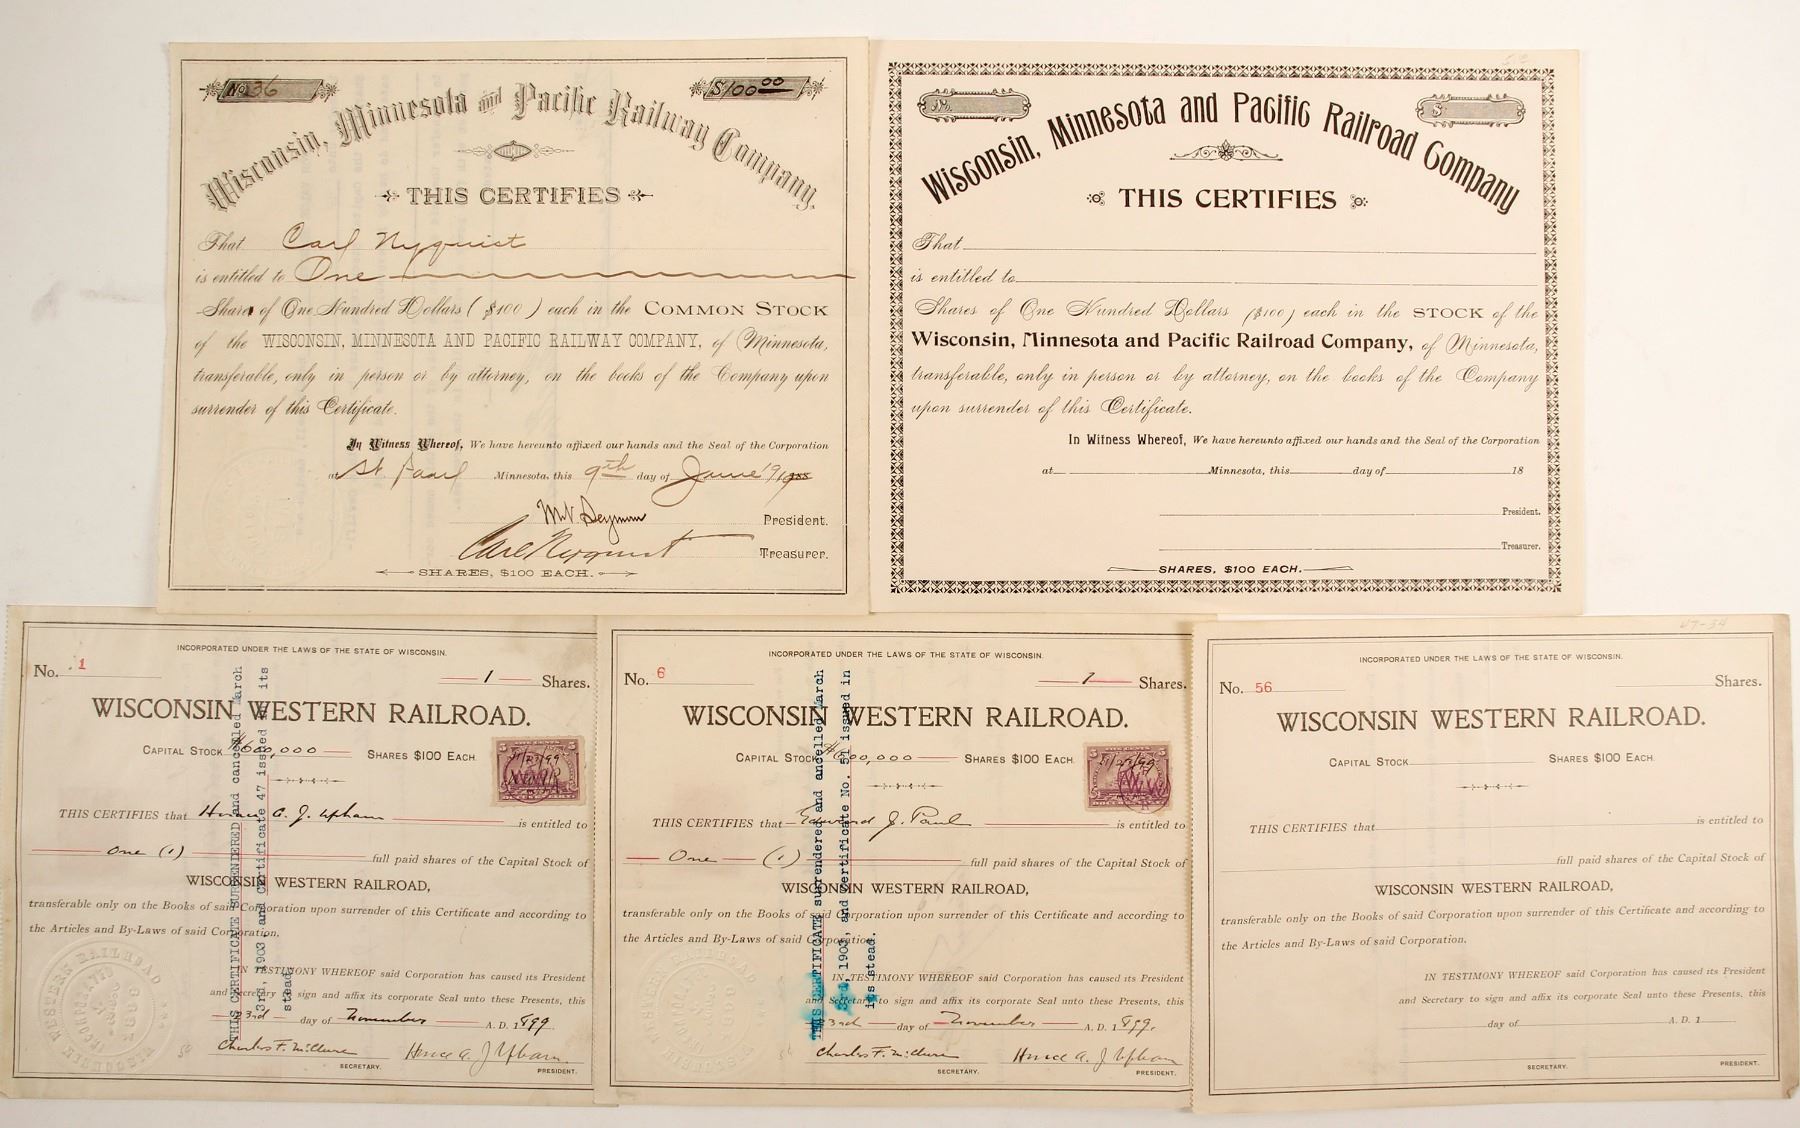 No 36
$100.00
Wisconsin, Minnesota and Pacific Railway Company,
THIS CERTIFIES
That Carl Nyquist
is entitled to One
Shares of One Hundred Dollars ($100) each in the COMMON STOCK
of the WISCONSIN, MINNESOTA AND PACIFIC RAILWAY COMPANY, of Minnesota,
transferable, only in person or by attorney, on the books of the Company upon
surrender of this Certificate.
In Witness Whereof, We have hereunto affixed our hands and the Seal of the Corporation
at St. Paul Minnesota, this 9th day of June 19
President.
Carl Nyquist Treasurer.
SHARES, $100 EACH.
No.
$
Wisconsin, Minnesota and Pacific Railroad Company
THIS CERTIFIES
That
is entitled to
Shares of One Hundred Dollars ($100) each in the STOCK of the
Wisconsin, Minnesota and Pacific Railroad Company, of Minnesota,
transferable, only in person or by attorney, on the books of the Company
upon surrender of this Certificate.
In Witness Whereof, We have hereunto affixed our hands and the Seal of the Corporation
at Minnesota, this day of 18
President.
Treasurer.
SHARES, $100 EACH.
INCORPORATED UNDER THE LAWS OF THE STATE OF WISCONSIN.
No. 1
1 Shares.
WISCONSIN WESTERN RAILROAD.
CAPITAL STOCK $600,000 SHARES $100 EACH.
THIS CERTIFIES that Horace A. J. Upham is entitled to
One (1) full paid shares of the Capital Stock of
WISCONSIN WESTERN RAILROAD,
transferable only on the Books of said Corporation upon surrender of this Certificate and according to
the Articles and By-Laws of said Corporation.
IN TESTIMONY WHEREOF said Corporation has caused its President
and Secretary to sign and affix its corporate Seal unto these Presents, this
23rd day of November A. D. 1899.
Charles F. McClure Horace A. J. Upham.
SECRETARY. PRESIDENT.
THIS CERTIFICATE SURRENDERED and cancelled March
3rd, 1903 and Certificate 47 issued in its
stead.
WESTERN RAILROAD
INCORPORATED
INCORPORATED UNDER THE LAWS OF THE STATE OF WISCONSIN.
No. 6
1 Shares.
WISCONSIN WESTERN RAILROAD.
CAPITAL STOCK $600,000 SHARES $100 EACH.
THIS CERTIFIES that Edward J. Paul is entitled to
One (1) full paid shares of the Capital Stock of
WISCONSIN WESTERN RAILROAD,
transferable only on the Books of said Corporation upon surrender of this Certificate and according to
the Articles and By-Laws of said Corporation.
IN TESTIMONY WHEREOF said Corporation has caused its President
and Secretary to sign and affix its corporate Seal unto these Presents, this
23rd day of November A. D. 1899.
Charles F. McClure Horace A. J. Upham
SECRETARY. PRESIDENT.
THIS CERTIFICATE surrendered and cancelled March
3rd, 1903, and Certificate No. 51 issued in
its stead.
47-34
INCORPORATED UNDER THE LAWS OF THE STATE OF WISCONSIN.
No. 56
Shares.
WISCONSIN WESTERN RAILROAD.
CAPITAL STOCK SHARES $100 EACH.
THIS CERTIFIES that is entitled to
full paid shares of the Capital Stock of
WISCONSIN WESTERN RAILROAD,
transferable only on the Books of said Corporation upon surrender of this Certificate and according to
the Articles and By-Laws of said Corporation.
IN TESTIMONY WHEREOF said Corporation has caused its President
and Secretary to sign and affix its corporate Seal unto these Presents, this
day of A. D. 1
SECRETARY. PRESIDENT.